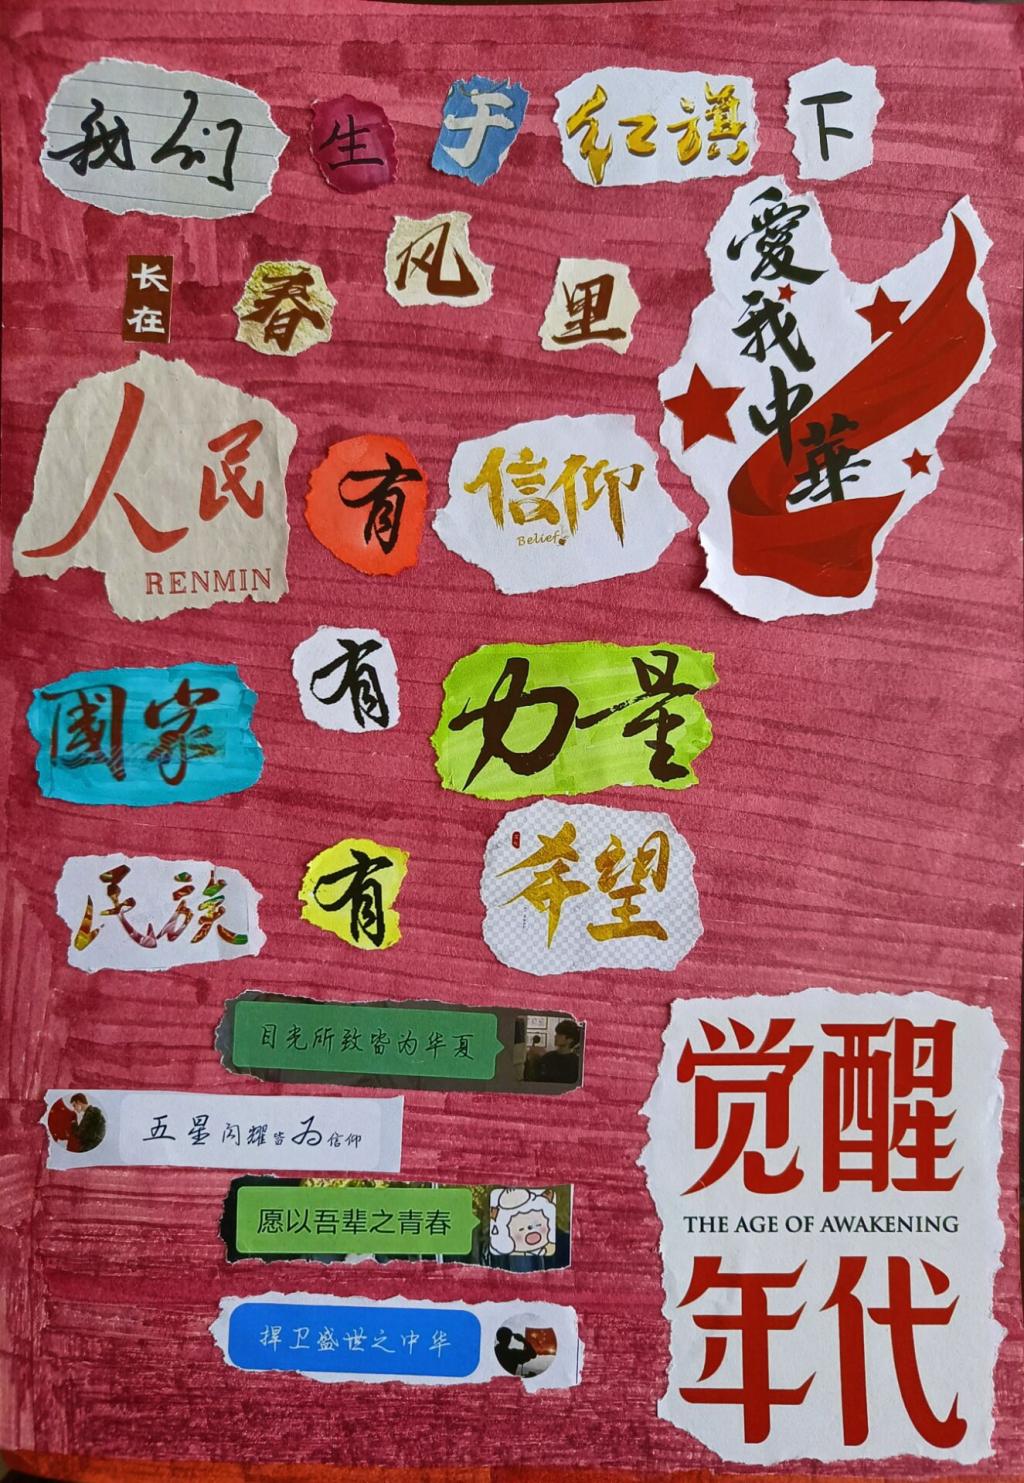 我们生于红旗下
长在春风里
愛我中華
人民有信仰
Belief
RENMIN
國家有力量
民族有希望
目光所致皆为华夏
五星闪耀皆为信仰
愿以吾辈之青春
捍卫盛世之中华
觉醒
THE AGE OF AWAKENING
年代